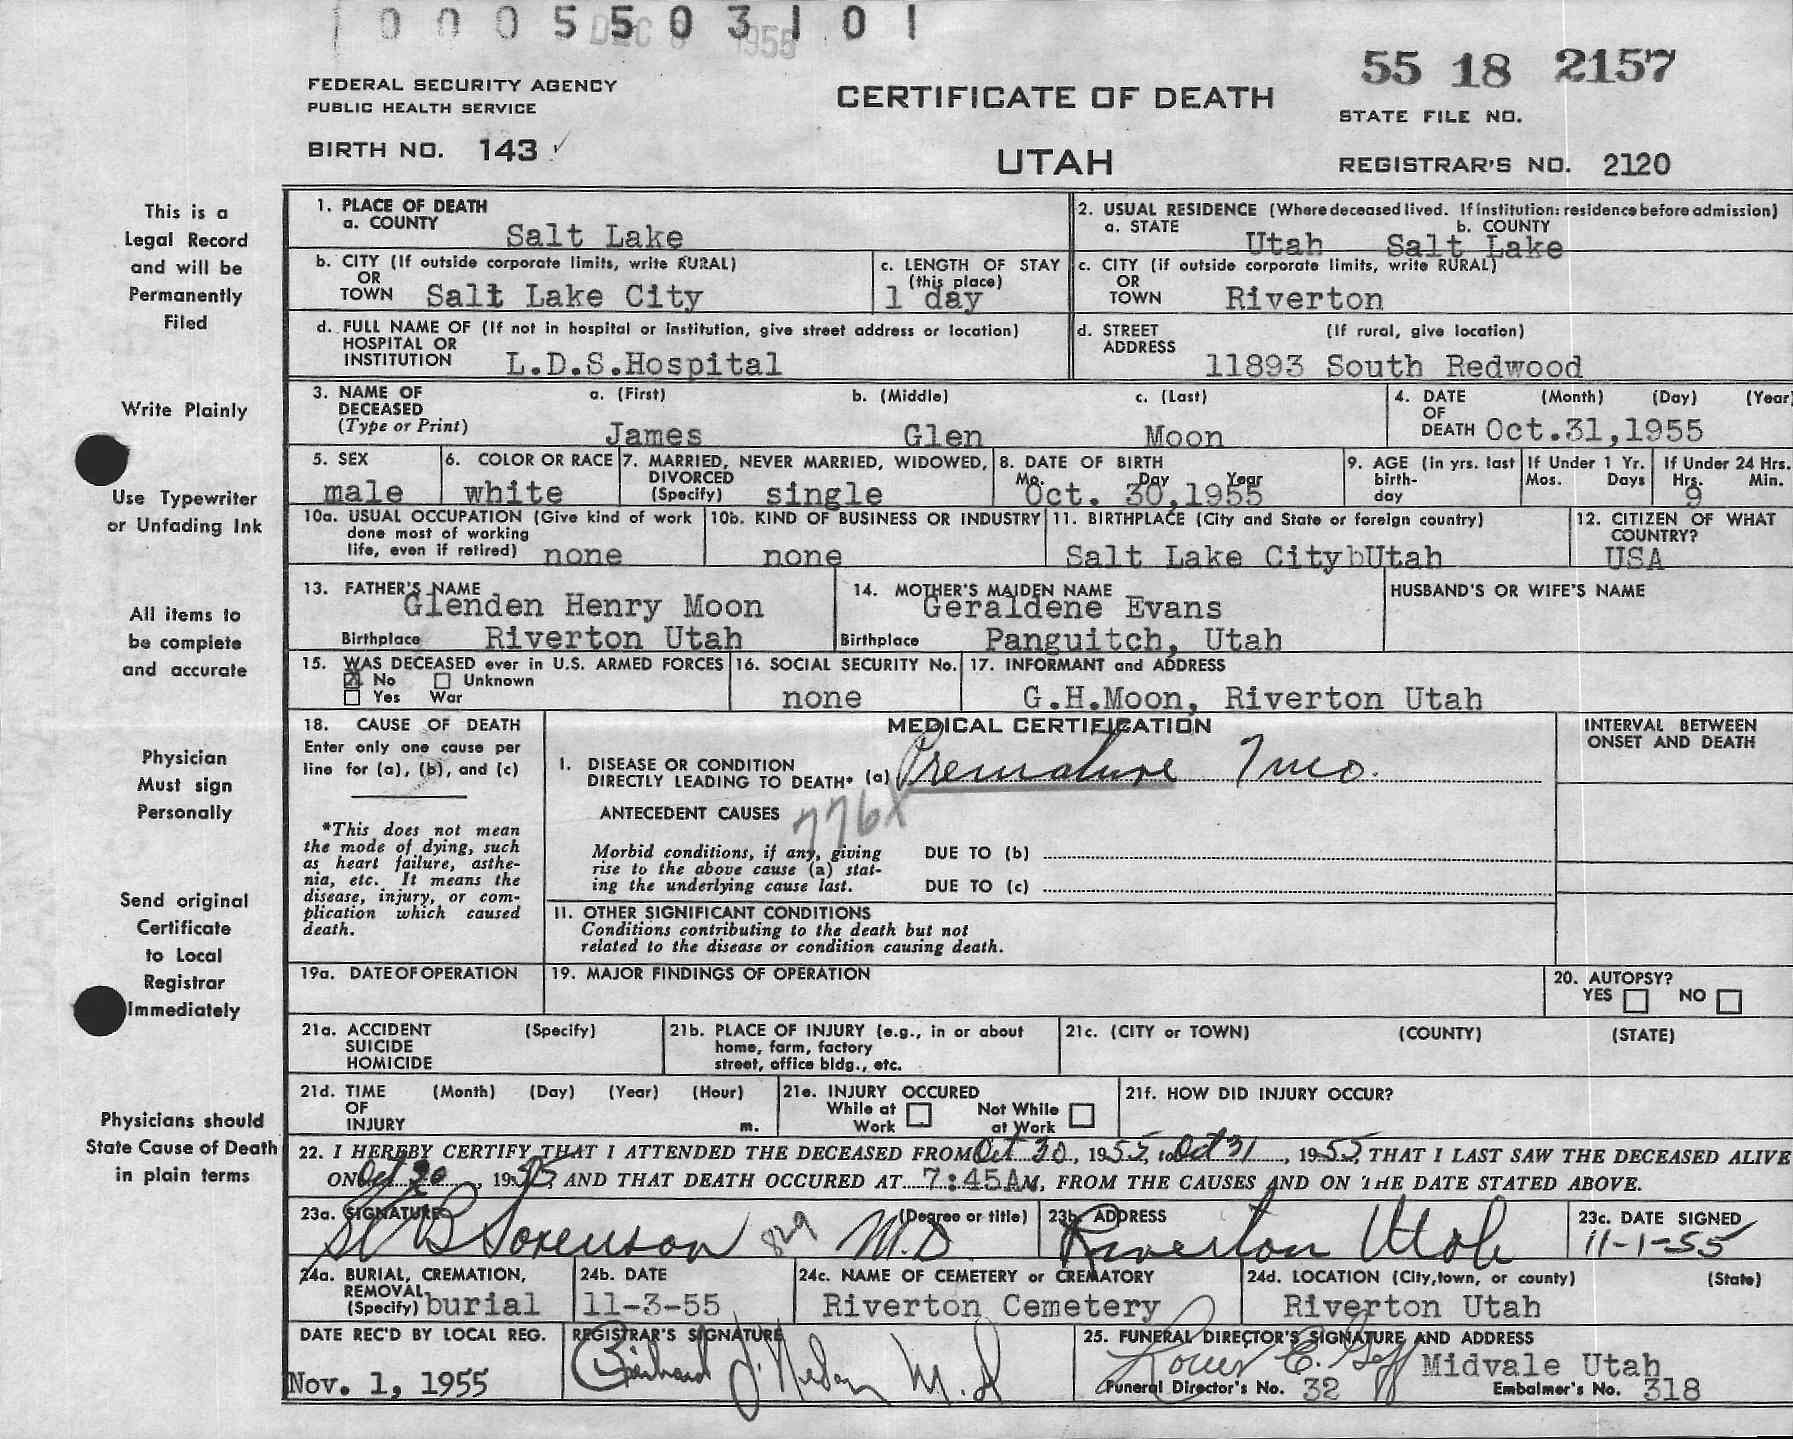 10005503101
DEC 1955
55 18 2157
FEDERAL SECURITY AGENCY
PUBLIC HEALTH SERVICE
CERTIFICATE OF DEATH
STATE FILE NO.
BIRTH NO. 143
UTAH
REGISTRAR'S NO. 2120
This is a
Legal Record
and will be
Permanently
Filed
Write Plainly
Use Typewriter
or Unfading Ink
All items to
be complete
and accurate
Physician
Must sign
Personally
Send original
Certificate
to Local
Registrar
Immediately
Physicians should
State Cause of Death
in plain terms
1. PLACE OF DEATH
a. COUNTY Salt Lake
2. USUAL RESIDENCE (Where deceased lived. If institution: residence before admission)
a. STATE Utah b. COUNTY Salt Lake
b. CITY (If outside corporate limits, write RURAL)
OR
TOWN Salt Lake City
c. LENGTH OF STAY
(this place)
1 day
c. CITY (if outside corporate limits, write RURAL)
OR
TOWN Riverton
d. FULL NAME OF (If not in hospital or institution, give street address or location)
HOSPITAL OR
INSTITUTION L.D.S.Hospital
d. STREET (If rural, give location)
ADDRESS 11893 South Redwood
3. NAME OF DECEASED
(Type or Print)
a. (First) b. (Middle) c. (Last)
James Glen Moon
4. DATE (Month) (Day) (Year)
OF
DEATH Oct.31,1955
5. SEX
male
6. COLOR OR RACE
white
7. MARRIED, NEVER MARRIED, WIDOWED,
DIVORCED
(Specify) single
8. DATE OF BIRTH
Mo. Day Year
Oct. 30,1955
9. AGE (in yrs. last
birth-
day
If Under 1 Yr.
Mos. Days
If Under 24 Hrs.
Hrs. Min.
9
10a. USUAL OCCUPATION (Give kind of work
done most of working
life, even if retired) none
10b. KIND OF BUSINESS OR INDUSTRY
none
11. BIRTHPLACE (City and State or foreign country)
Salt Lake CitybUtah
12. CITIZEN OF WHAT
COUNTRY?
USA
13. FATHER'S NAME
Glenden Henry Moon
Birthplace Riverton Utah
14. MOTHER'S MAIDEN NAME
Geraldene Evans
Birthplace Panguitch, Utah
HUSBAND'S OR WIFE'S NAME
15. WAS DECEASED ever in U.S. ARMED FORCES
No Unknown
Yes War
16. SOCIAL SECURITY No.
none
17. INFORMANT and ADDRESS
G.H.Moon, Riverton Utah
18. CAUSE OF DEATH
Enter only one cause per
line for (a), (b), and (c)
*This does not mean
the mode of dying, such
as heart failure, asthe-
nia, etc. It means the
disease, injury, or com-
plication which caused
death.
MEDICAL CERTIFICATION
I. DISEASE OR CONDITION
DIRECTLY LEADING TO DEATH* (a) Premature 7 mo.
ANTECEDENT CAUSES
776X
Morbid conditions, if any, giving
rise to the above cause (a) stat-
ing the underlying cause last.
DUE TO (b)
DUE TO (c)
II. OTHER SIGNIFICANT CONDITIONS
Conditions contributing to the death but not
related to the disease or condition causing death.
INTERVAL BETWEEN
ONSET AND DEATH
19a. DATE OF OPERATION
19. MAJOR FINDINGS OF OPERATION
20. AUTOPSY?
YES NO
21a. ACCIDENT (Specify)
SUICIDE
HOMICIDE
21b. PLACE OF INJURY (e.g., in or about
home, farm, factory
street, office bldg., etc.
21c. (CITY or TOWN) (COUNTY) (STATE)
21d. TIME (Month) (Day) (Year) (Hour)
OF
INJURY m.
21e. INJURY OCCURED
While at Work Not While at Work
21f. HOW DID INJURY OCCUR?
22. I HEREBY CERTIFY THAT I ATTENDED THE DECEASED FROM Oct 30, 1955, to Oct 31, 1955, THAT I LAST SAW THE DECEASED ALIVE
ON Oct 30, 1955, AND THAT DEATH OCCURED AT 7:45AM, FROM THE CAUSES AND ON THE DATE STATED ABOVE.
23a. SIGNATURE (Degree or title)
Sorenson M.D.
23b. ADDRESS
Riverton Utah
23c. DATE SIGNED
11-1-55
24a. BURIAL, CREMATION,
REMOVAL
(Specify) burial
24b. DATE
11-3-55
24c. NAME OF CEMETERY or CREMATORY
Riverton Cemetery
24d. LOCATION (City, town, or county) (State)
Riverton Utah
DATE REC'D BY LOCAL REG.
Nov. 1, 1955
REGISTRAR'S SIGNATURE
25. FUNERAL DIRECTOR'S SIGNATURE AND ADDRESS
Midvale Utah
Funeral Director's No. 32 Embalmer's No. 318